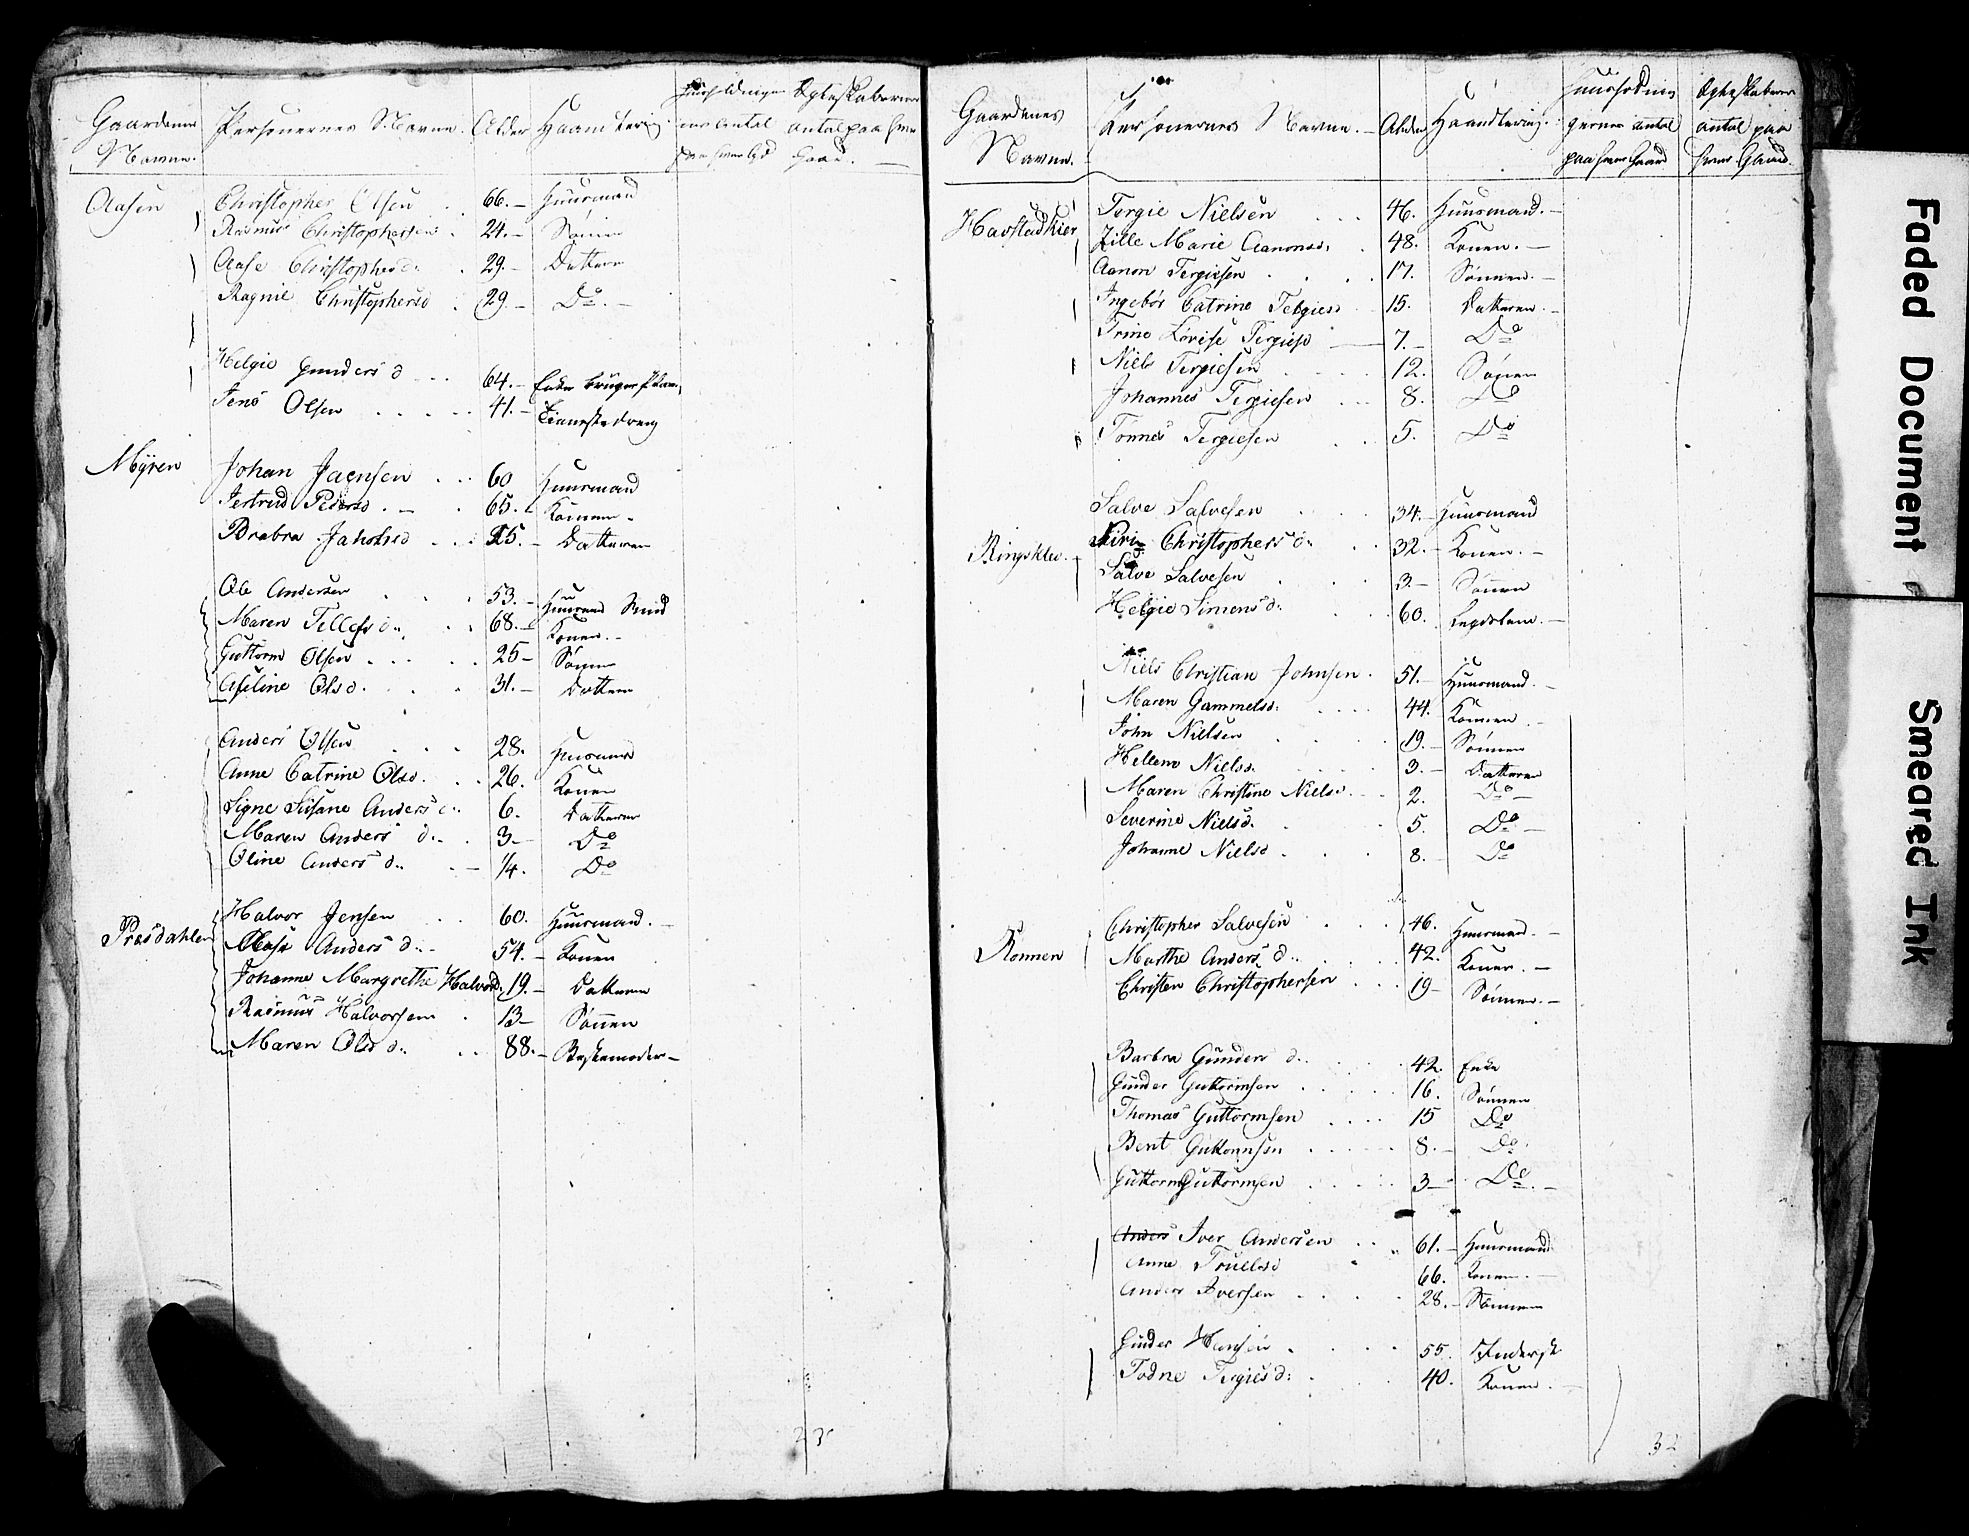 Gaardenes Personernes Navne. Alder Haandtering Huusholdninger Ægteskabernes
nes Antal antal paa hver
Navne. paa hver Gd Gaard. —
Aasen Christopher Olsen . 66. – Huusmand
Rasmus Christophersen . 24. – Sønnen
Aase Christophersd: . 29. – Datteren
Ragnil Christophersd . 29. – Do. –
Helgie Gunders d . . . 64. – Enke bruger
Jens Olsen . . . . . 41. – Tienestedreng
Myren Johan Jaensen . . . 60 Huusmand
Jertrud Peders d . – . 65. – Konen –
Brabra Jahansd . . . 25. – Datteren
Ole Andersen . . . 53. – Huusmand
Maren Tellefs d.. . . 68. – Konen. –
Guttorm Olsen . . . . . 25 – Sønnen
Aseline Ols d. . . . 31. – Datteren
Anders Olsen . . . 28. Huusmand
Anne Catrine Olsd. . . 26. Konen
Signe Susane Anders d.. 6. Datteren
Maren Anders d.. . 3 – Do
Oline Anders d.. . – 1/4. Do
Præsdahlen Halvor Jensen . . 60. Huusmand. –
Aase Anders d.. 54. – Konen
Johanne Margrethe Halvord. 19. – Datteren
Rasmus Halvorsen . 13 – Sønnen
Maren Ols d.. . . 88. – Bestemoder –
23
Gaardenes Personernes Navne. – Alder Haandtering. Huusholdnin Ægteskabernes
gernes Antal antal paa
Navne. paa hver Gaard hver Gaard.
Havstadkier Tergie Nielsen . . . 46. Huusmand. –
Zille Marie Aanonsd. . 48. Konen. –
Aanon Tergiesen . . . . 17. Sønnen. –
Ingebor Catrine Tergiesd 15. Datteren. –
Trine Lovise Tergiesd — 7. – Do
Niels Tergiesen . . . . 12. Sønnen
Johannes Tergiesen . . . 8. Do
Tønnes Tergiesen . . 5. Do
Salve Salvesen . . . 34. – Huusmand
Ringsklev. – Siri Christophers d.. . . 32. – Konen. –
Salve Salvesen . . . 3 – Sønnen
Helgie Simens d. . . 60. Legdslem. –
Niels Christian Johnsen . 51. – Huusmand. –
Maren Gammelsd. . . . . 44. Konen. –
John Nielsen . . . 19. – Sønnen
Hellene Nielsd. . . . . 3. – Datteren
Maren Christine Nielsd. . . 2. Do –
Severine Nielsd. . . . 5. Do –
Johanne Nielsd . . . 8. – Do
Rønnen Christopher Salvesen . . . 46. Huusmand. –
Marthe Anders d.. . . . 42. Konen. –
Christen Christophersen . . . 19 – Sønnen. –
Barbra Gunders d.. . . . 42. Enke
Gunder Guttormsen . . . . 16. Sønnen
Thomas Guttormsen . . . . 15 Do
Bent Guttormsen . . . . . 8. – Do.
Guttorm Guttormsen . . . . . 3 – . Do. –
Anders Iver Andersen . . „ 61. – Huusmand
Anne Truelsd . 66. Konen. —
Anders Iversen . . . . . 28. – Sønnen
Gunder Hansen . . . . 55. Inderst
Todne Tergies d: . . . . 40. Konen. –
32
Faded Document
Smeared Ink